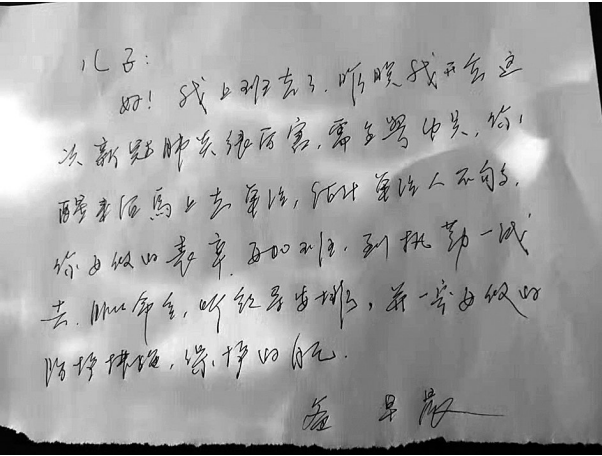 儿子:
好!我上班去了,昨晚我开会这
次新冠肺炎很厉害,
醒来后马上去单位,估计单位人不够,
你要做的表率,到执勤一线
去,服从命令,听领导安排,并一定要做好
防护措施,保护好自己.
爸 早晨